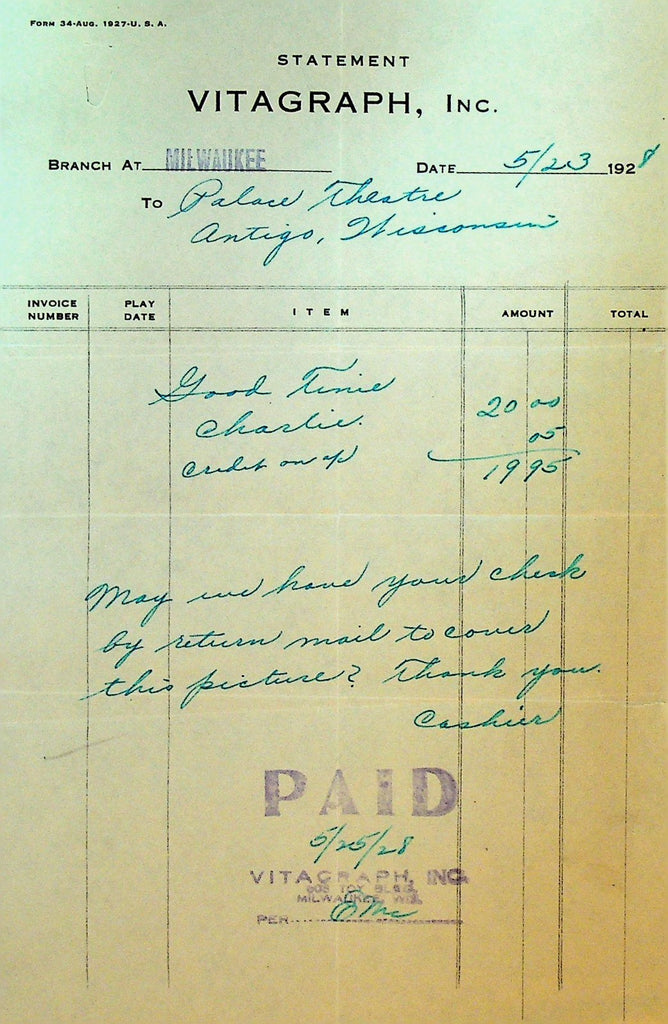 FORM 34-AUG. 1927-U. S. A.
STATEMENT
VITAGRAPH, INC.
BRANCH AT MILWAUKEE DATE 5/23 1928
TO Palace Theatre
Antigo, Wisconsin
INVOICE NUMBER PLAY DATE ITEM AMOUNT TOTAL
Good Time
Charlie. 20 00
credit on a/ 05
19 95
May we have your check
by return mail to cover
this picture? Thank you.
Cashier
PAID
5/25/28
VITAGRAPH, INC.
TOY BLDG.
MILWAUKEE, WIS.
PER